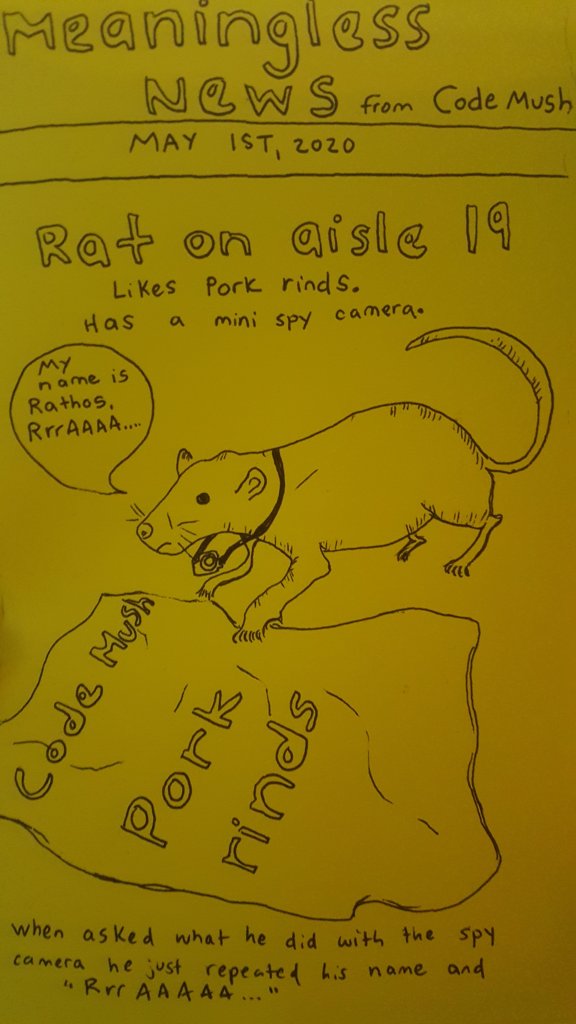 Meaningless
News from Code Mush
MAY 1ST, 2020
Rat on aisle 19
Likes Pork rinds.
Has a mini spy camera.
My
name is
Rathos,
RrrAAAA....
Code Mush
Pork
rinds
when asked what he did with the spy
camera he just repeated his name and
"RrrAAAAA..."